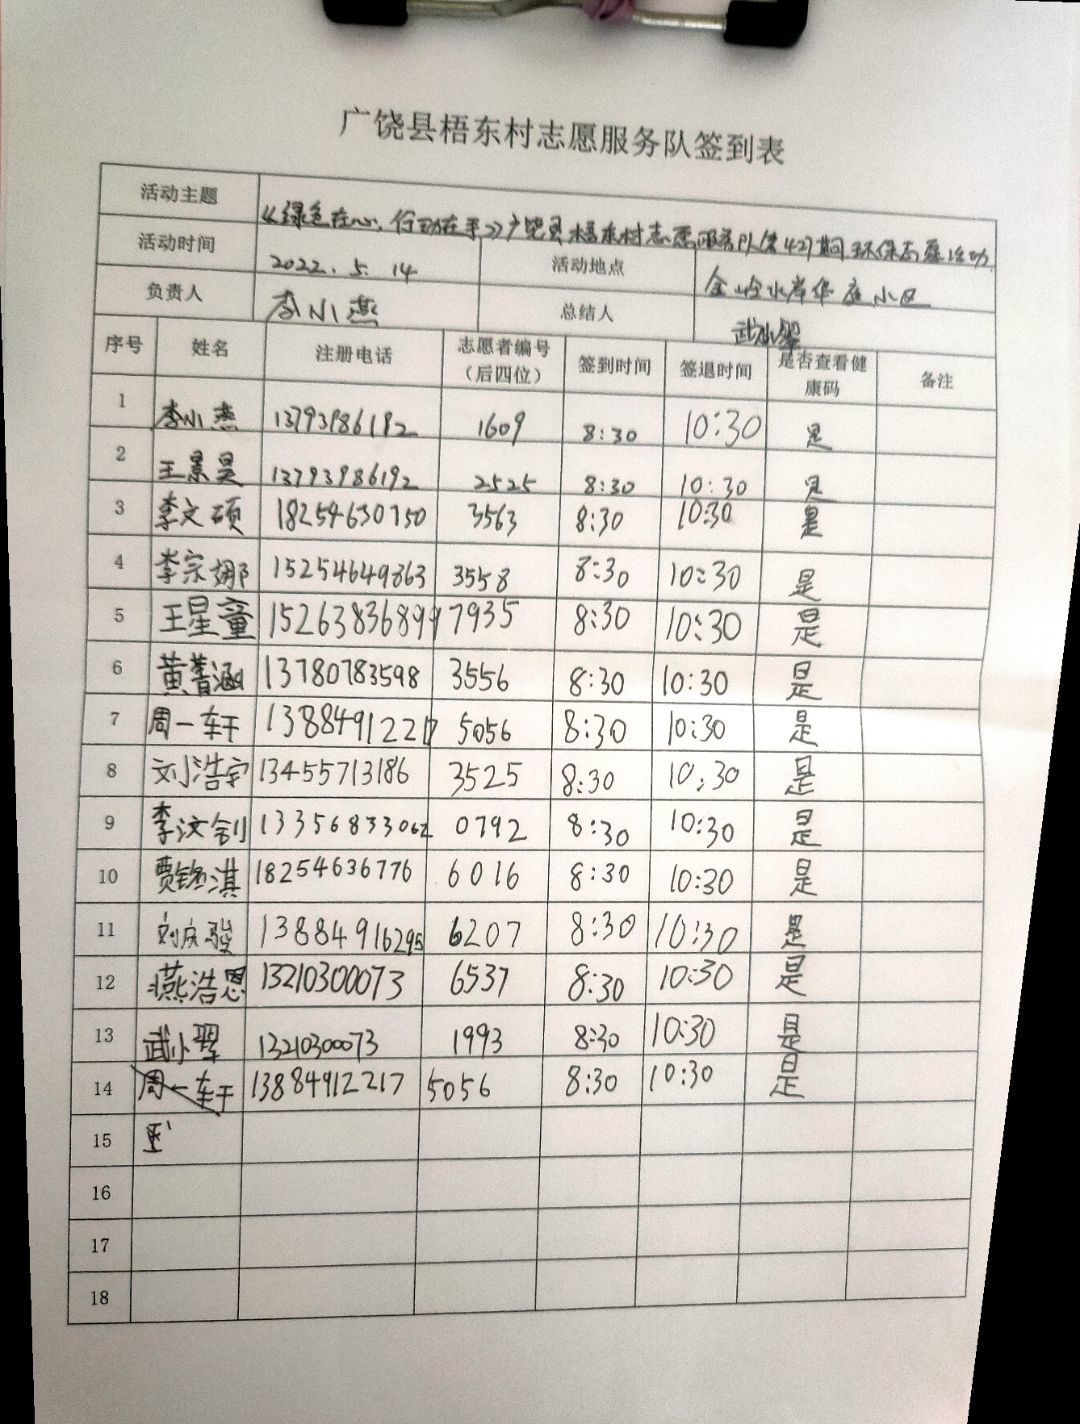 广饶县梧东村志愿服务队签到表
活动主题 《绿色在心，行动在手》广饶县梧东村志愿服务队第427期环保志愿活动
活动时间 2022.5.14 活动地点 金岭水岸华庭小区
负责人 李小燕 总结人 武小翠
序号 姓名 注册电话 志愿者编号（后四位） 签到时间 签退时间 是否查看健康码 备注
1 李小燕 13793986192 1609 8:30 10:30 是
2 王景昊 13793986192 2525 8:30 10:30 是
3 李文硕 18254630750 3563 8:30 10:30 是
4 李宗娜 15254649863 3558 8:30 10:30 是
5 王星童 15263836899 7935 8:30 10:30 是
6 黄菁涵 13780783598 3556 8:30 10:30 是
7 周一轩 13884912217 5056 8:30 10:30 是
8 刘浩宇 13455713186 3525 8:30 10:30 是
9 李汶钊 13356833062 0792 8:30 10:30 是
10 贾铭淇 18254636776 6016 8:30 10:30 是
11 刘庆骏 13884916295 6207 8:30 10:30 是
12 燕浩恩 13210300073 6537 8:30 10:30 是
13 武小翠 13210300073 1993 8:30 10:30 是
14 周一轩 13884912217 5056 8:30 10:30 是
15
16
17
18